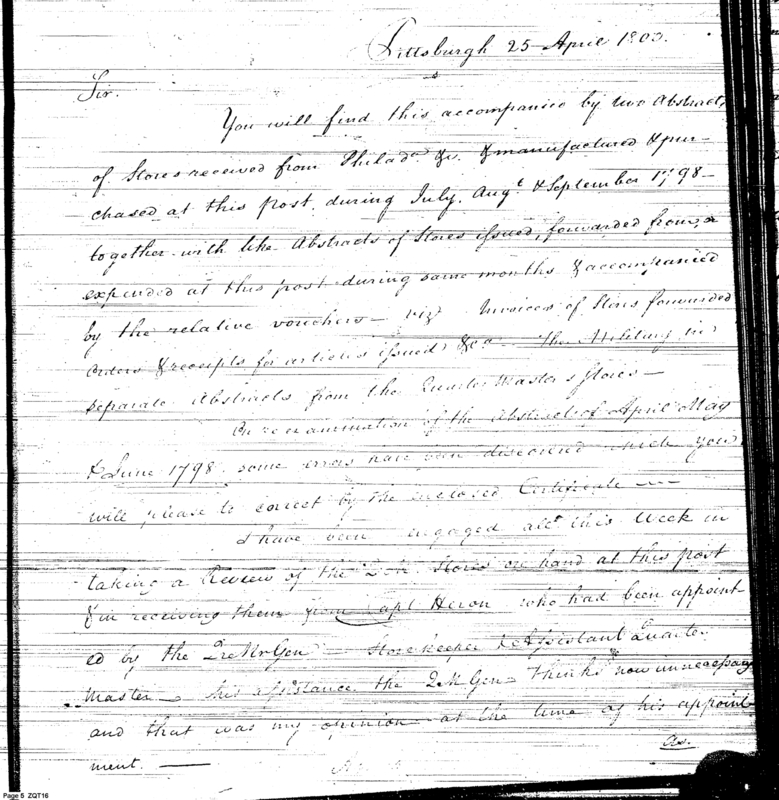 Pittsburgh 25 April 1803.
Sir.
You will find this accompanied by two Abstracts
of Stores received from Philada. &c. & manufactured & pur-
chased at this post during July, Augt. & September 1798 -
together with like Abstracts of Stores issued, forwarded from, &
expended at this post during same months & accompanied
by the relative vouchers - vizt Invoices of Stores forwarded
orders & receipts for articles issued &ca - The Military in
separate Abstracts from the Quarter Master's Stores -
On reexamination of the Abstracts of April May
& June 1798 some errors have been discovered which you
will please to correct by the enclosed Certificate -
I have been engaged all this Week in
taking a Review of the Stores on hand at this post
& in receiving them from Capt Heron who had been appoint-
ed by the Gen Storekeeper & Assistant Quarter
Master - his assistance the QM Gen thinks now unnecessary
and that was my opinion at the time of his appoint-
ment. -
As.
Page 5 ZQT16